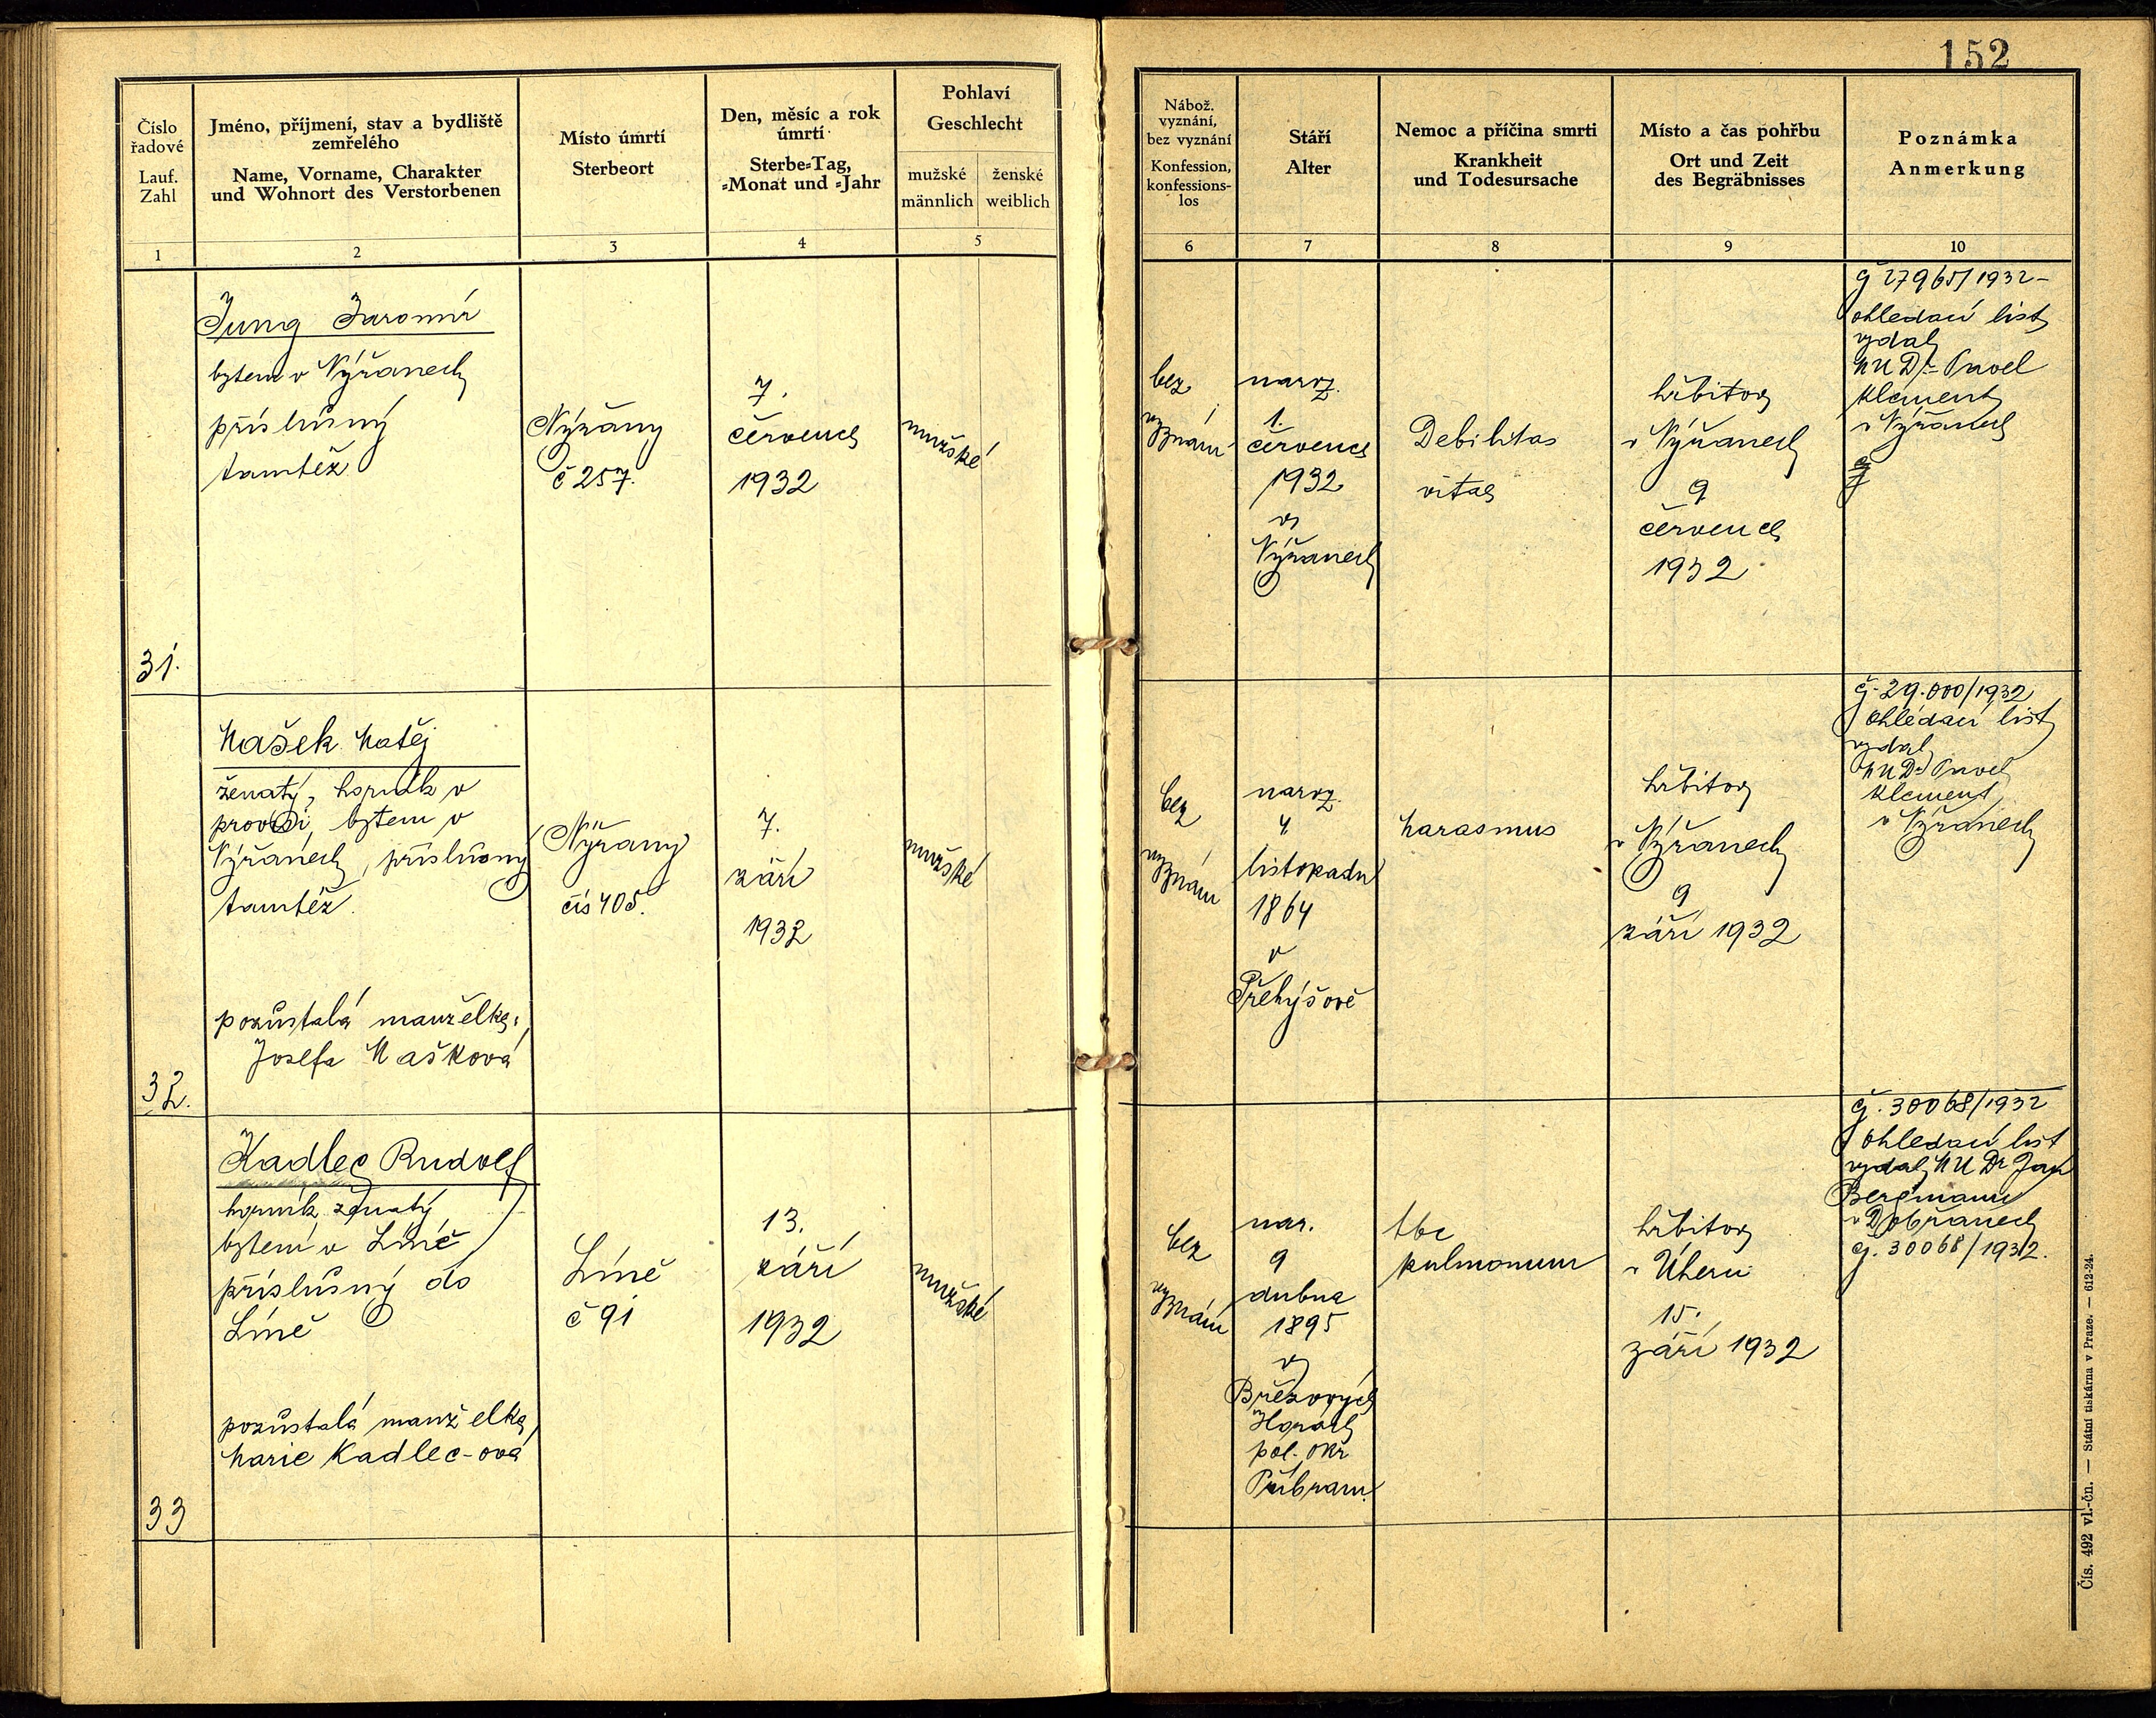 152
Číslo
řadové
Lauf.
Zahl
1
Jméno, příjmení, stav a bydliště
zemřelého
Name, Vorname, Charakter
und Wohnort des Verstorbenen
2
Místo úmrtí
Sterbeort
3
Den, měsíc a rok
úmrtí
Sterbe=Tag,
=Monat und =Jahr
4
Pohlaví
Geschlecht
mužské
männlich
ženské
weiblich
5
Nábož.
vyznání,
bez vyznání
Konfession,
konfessions-
los
6
Stáří
Alter
7
Nemoc a příčina smrti
Krankheit
und Todesursache
8
Místo a čas pohřbu
Ort und Zeit
des Begräbnisses
9
Poznámka
Anmerkung
10
31.
Jung Jaromír
bytem v Nýřanech
příslušný
tamtéž
Nýřany
č 257.
7.
července
1932
mužské
bez
vyznání
naroz.
1.
července
1932
v
Nýřanech
Debilitas
vitae
hřbitov
v Nýřanech
9
července
1932
čj 27965/1932-
ohledací list
vydal
MUDr Pavel
Klement
v Nýřanech
32.
Mašek Matěj
ženatý, horník v
provisi, bytem v
Nýřanech, příslušný
tamtéž.
pozůstalá manželka:
Josefa Mašková
Nýřany
čís 405.
7.
září
1932
mužské
bez
vyznání
naroz.
4
listopadu
1864
v
Přehýšově
Marasmus
hřbitov
v Nýřanech
9
září 1932
čj. 29.000/1932
ohledací list
vydal
MUDr Pavel
Klement
v Nýřanech
33
Kadlec Rudolf
horník, ženatý
bytem v Líně
příslušný do
Líně
pozůstalá manželka
Marie Kadlec-ová
Líně
č 91
13.
září
1932
mužské
bez
vyznání
nar.
9
dubna
1895
v
Březových
Horách
pol. okr
Příbram.
tbc
pulmonum
hřbitov
v Úherci
15.
září 1932
čj. 30068/1932
ohledací list
vydal MUDr Jan
Bergmann
v Dobřanech
čj. 30068/1932.
Čís. 492 vl.-čn. — Státní tiskárna v Praze. — 612-24.